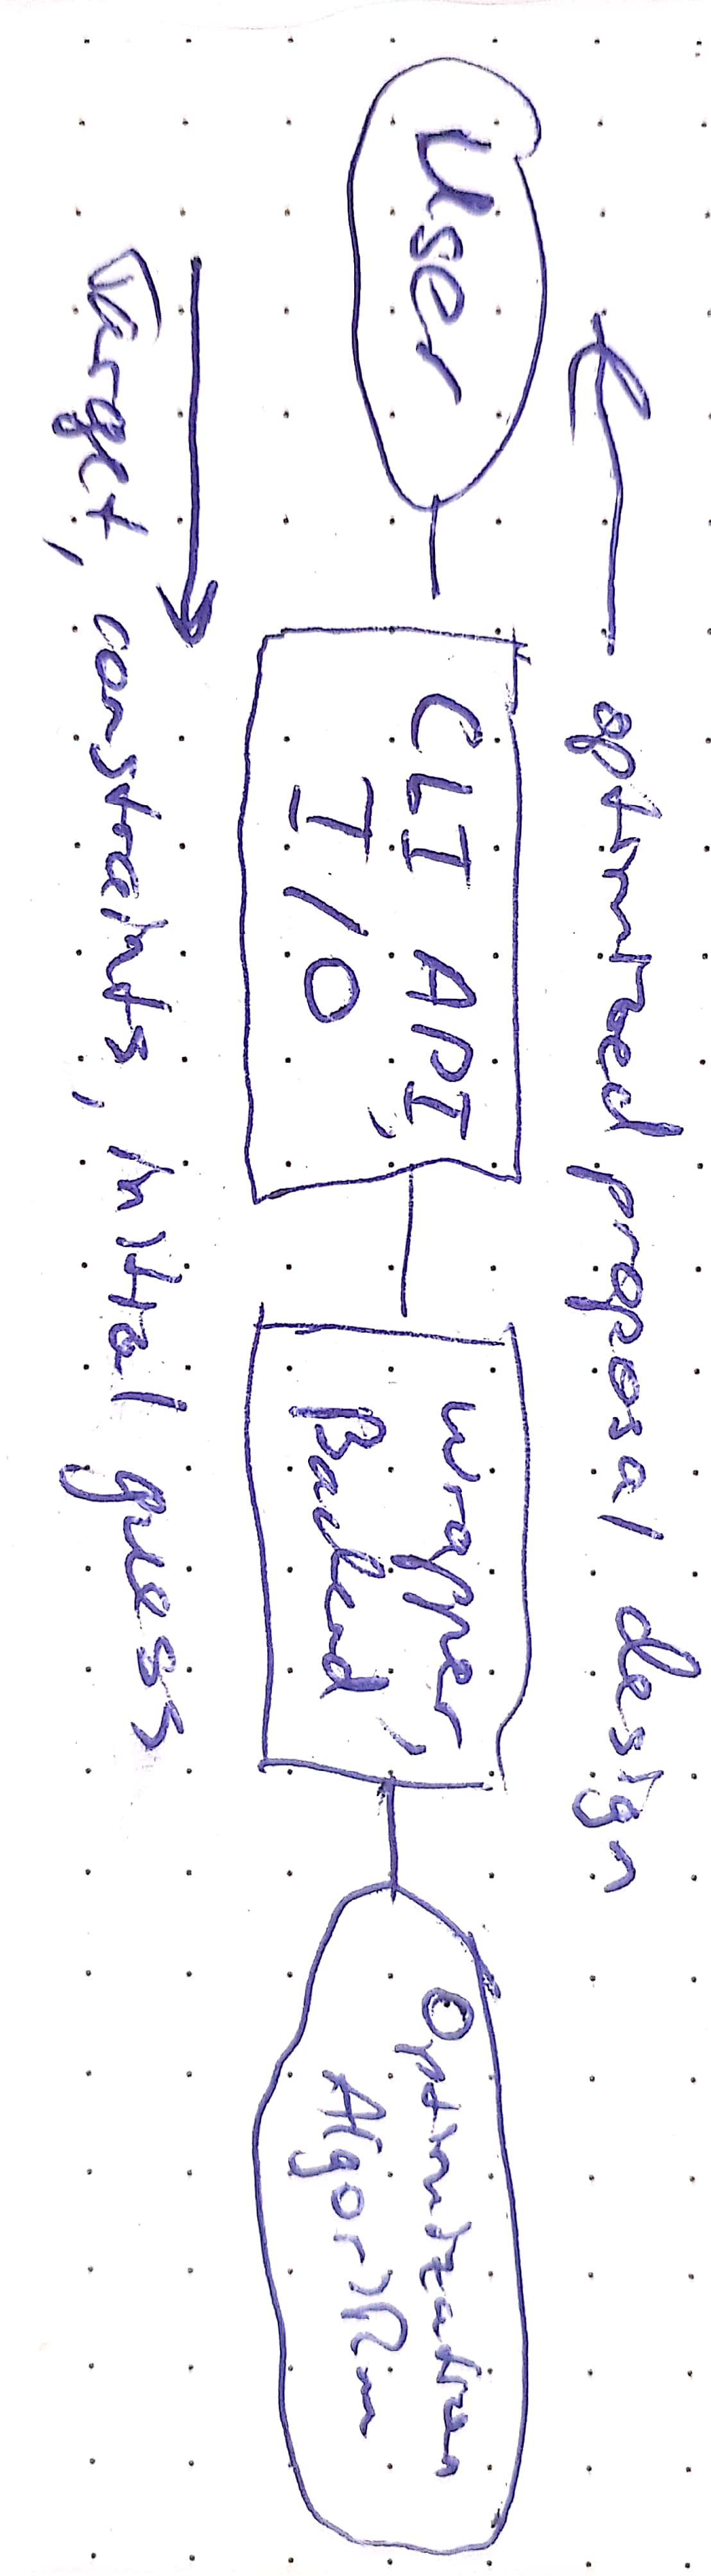 optimized proposal design
User
CLI API,
I/O
Wrapper,
Backend
Optimization
Algorithm
target, constraints, initial guess